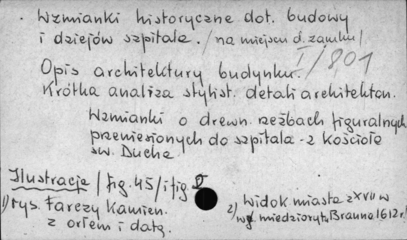 • Wzmianki historyczne dot. budowy
i dziejów szpitala. /na miejscu d. zamku/
I/801
Opis architektury budynku.
Krótka analiza stylist. detali architekton.
Wzmianki o drewn. rzeźbach figuralnych
przeniesionych do szpitala - z Kościoła
sw. Ducha
Ilustracje /fig. 45/ i fig
1) rys. Tarczy Kamien.
z orłem i datą.
2) Widok miasta z XVII w
wg. miedziorytu Brauna 1612 r/